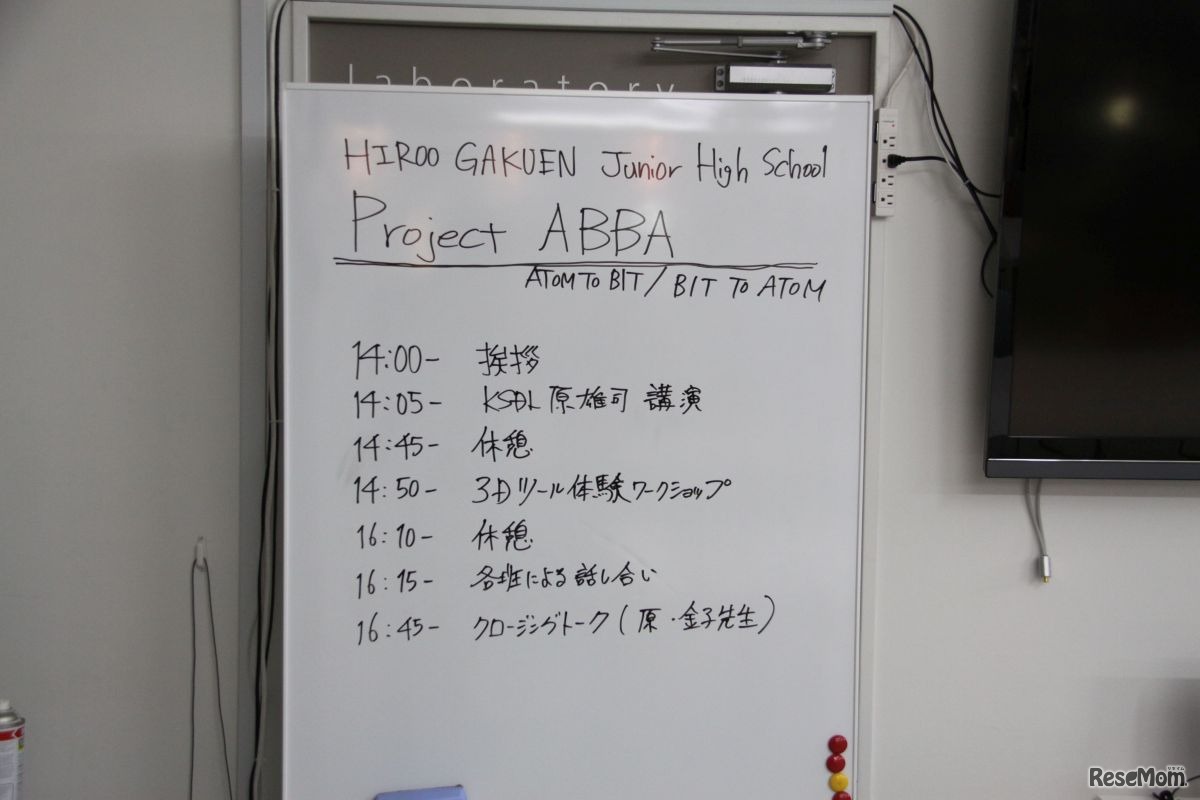 laboratory
HIROO GAKUEN Junior High School
Project ABBA
ATOM TO BIT / BIT TO ATOM
14:00- 挨拶
14:05- KSDL 原雄司 講演
14:45- 休憩
14:50- 3Dツール体験ワークショップ
16:10- 休憩
16:15- 各班による話し合い
16:45- クロージングトーク(原・金子先生)
ReseMom